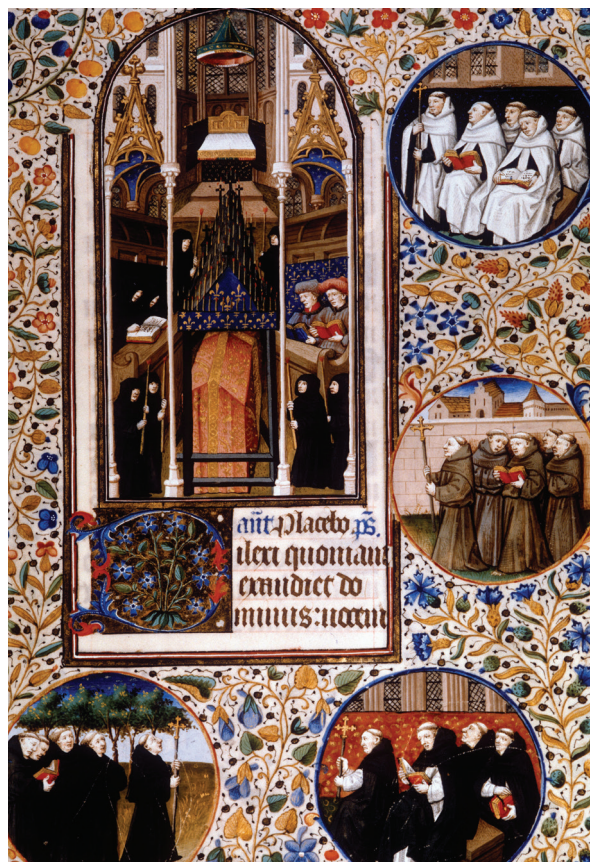 añt Placebo p̄s.
Dilexi quoniam
exaudiet do
minus: uocem